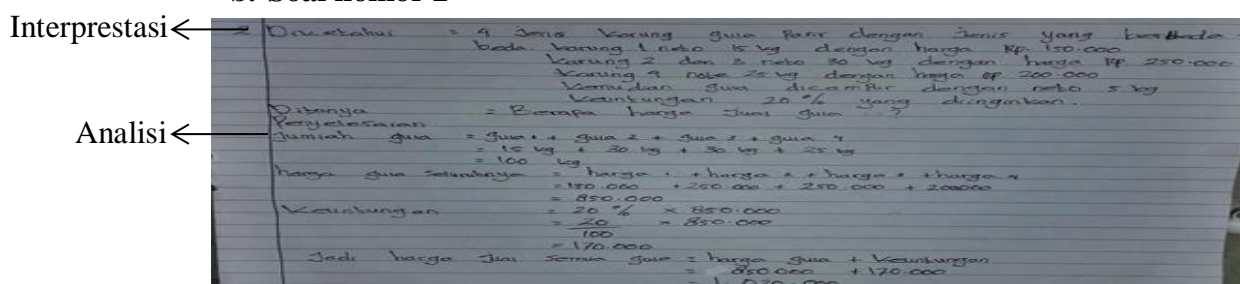 b. Soal nomor 2
Interprestasi
2 Diketahui = 4 Jenis karung gula Pasir dengan Jenis yang berbeda
beda. karung 1 neto 15 kg dengan harga Rp. 150.000
karung 2 dan 3 neto 30 kg dengan harga Rp 250.000
karung 4 neto 25 kg dengan harga Rp 200.000
kemudian gula dicampur dengan neto 5 kg
keuntungan 20 % yang diinginkan.
Ditanya = Berapa harga Jual gula ..?
Analisi
Penyelesaian
Jumlah gula = gula 1 + gula 2 + gula 3 + gula 4
= 15 kg + 30 kg + 30 kg + 25 kg
= 100 kg
harga gula seluruhnya = harga 1 + harga 2 + harga 3 + harga 4
= 150.000 + 250.000 + 250.000 + 200000
= 850.000
keuntungan = 20 % × 850.000
= 20/100 × 850.000
= 170.000
Jadi harga Jual semua gula = harga gula + keuntungan
= 850.000 + 170.000
= 1.020.000